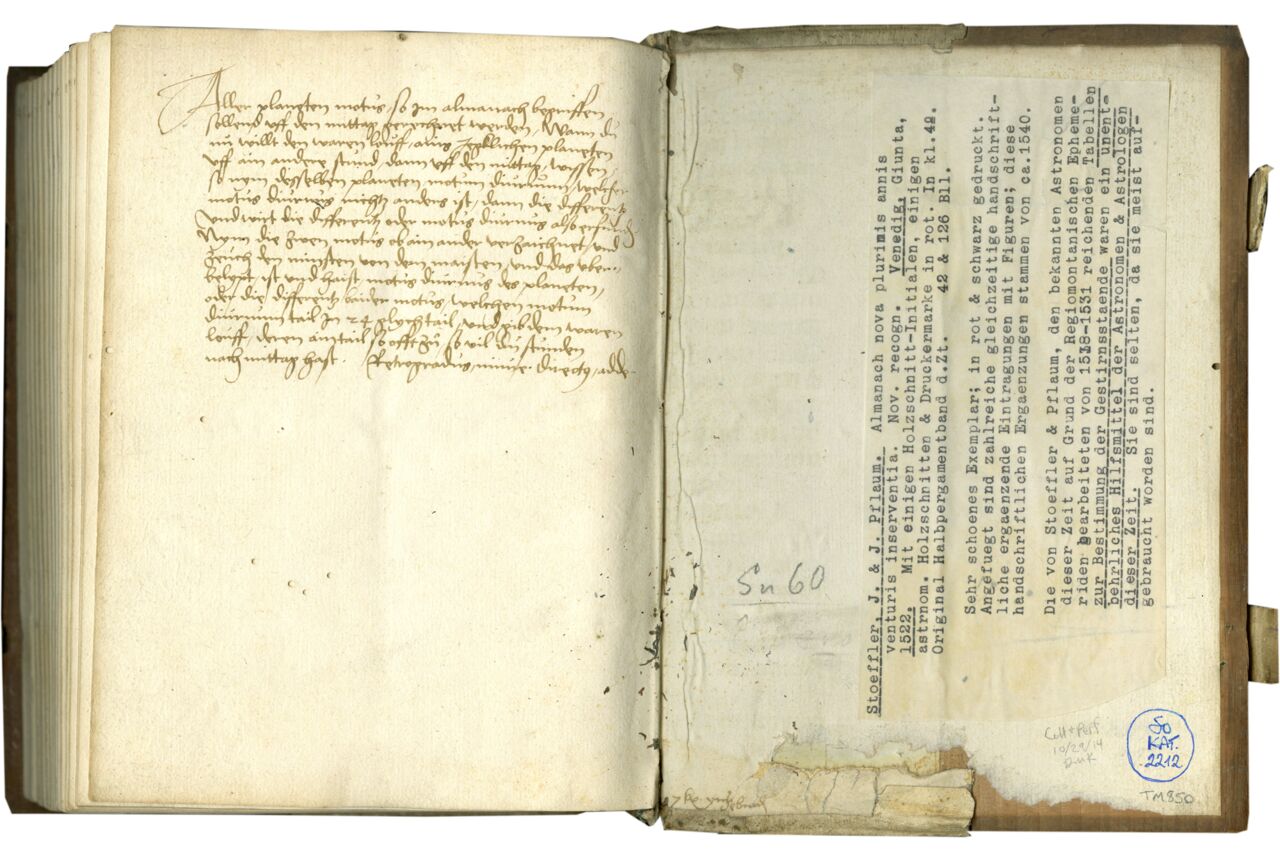 Aller planeten motus, so im almanach begriffen
sollend uff den mittag gerechnet werden, Wann du
nu willt den waren louff, ains yecklichen planeten
uff ain andere stund dann uff den mittag, wyssen
so nym desselben planeten motum diurnum, welcher
motus diurnus nichtz anders ist, dann die different
und wirt die differentz oder motus diurnus also
Nym die zwen motus ob ain ander verzaichnet, und
zeuch den minsten von dem maisten, und das uber-
belypt ist und haist motus diurnus des planeten,
oder die differentz baider motus, welchen motum
diurnum tail in 24 glych tail, und gib dem waren
louff, deren ain tail so offt zu, so vil du stunden
nach mittag hast. Retrogradus, minue. directus, adde
Stoeffler, J. & J. Pflaum. Almanach nova plurimis annis
venturis inserventia. Nov. recogn. Venedig, Giunta,
1522. Mit einigen Holzschnitt-Initialen, einigen
astrnom. Holzschnitten & Druckermarke in rot. In kl.4º.
Original Halbpergamentband d.Zt. 42 & 126 Bll.
Sehr schoenes Exemplar; in rot & schwarz gedruckt.
Angefuegt sind zahlreiche gleichzeitige handschrift-
liche ergaenzende Eintragungen mit Figuren; diese
handschriftlichen Ergaenzungen stammen von ca.1540.
Die von Stoeffler & Pflaum, den bekannten Astronomen
dieser Zeit auf Grund der Regiomontanischen Epheme-
riden bearbeiteten von 1518-1531 reichenden Tabellen
zur Bestimmung der Gestirnsstaende waren ein unent-
behrliches Hilfsmittel der Astronomen & Astrologen
dieser Zeit. Sie sind selten, da sie meist auf-
gebraucht worden sind.
Sn 60
Coll + Perf
10/29/14
DMK
So
KAT.
2212
TM850